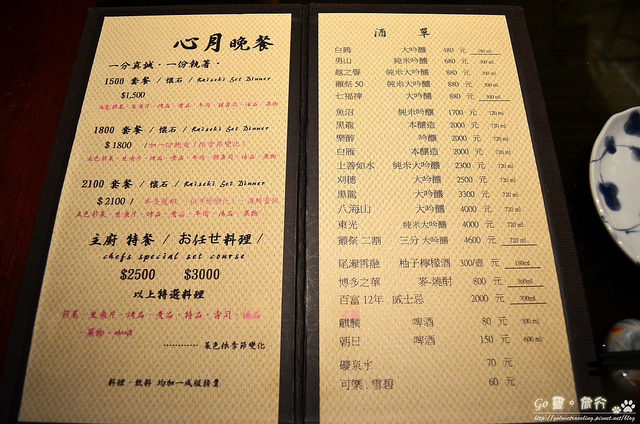 心月晚餐
一分真誠．一份執著．
1500 套餐 / 懷石 / Kaiseki Set Dinner
$1,500
1800 套餐 / 懷石 / Kaiseki Set Dinner
$1800 /
2100 套餐 / 懷石 / Kaiseki Set Dinner
$2100 /
主廚 特餐 / お任せ料理 /
chefs special set course
$2500 $3000
以上特選料理
前菜．生魚片．烤品．煮品．特品．壽司．湯品
．果物．咖啡
............ 菜色依季節變化
料理．飲料 均加一成服務費
酒 單
白鶴 大吟釀 480 元 180 ml
男山 純米吟釀 680 元 300 ml
越之譽 純米大吟釀 880 元 300 ml
獺祭 50 純米大吟釀 880 元 300 ml
七福神 大吟釀 880 元 300 ml
魚沼 純米吟釀 1700 元 720 ml
黑龍 本釀造 2000 元 720 ml
樂醉 吟釀 2000 元 720 ml
白雁 本釀造 2000 元 720 ml
上善如水 純米吟釀 2300 元 720 ml
刈穗 大吟釀 2500 元 720 ml
黑龍 大吟釀 3300 元 720 ml
八海山 大吟釀 4000 元 720 ml
東光 純米吟釀 4000 元 720 ml
獺祭 二割 三分 大吟釀 4600 元 720 ml
尾瀨雪融 柚子檸檬酒 300/壺 元 180ml
博多之華 麥-燒酎 800 元 360ml
百富 12年 威士忌 2000 元 700ml
麒麟 啤酒 80 元 300 ml
朝日 啤酒 150 元 600 ml
礦泉水 70 元
可樂．雪碧 60 元